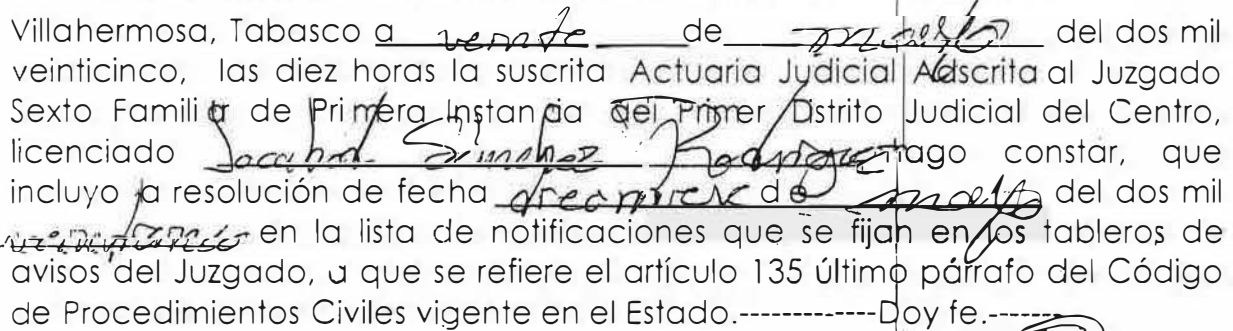 Villahermosa, Tabasco a veinte de mayo del dos mil
veinticinco, las diez horas la suscrita Actuaria Judicial Adscrita al Juzgado
Sexto Familiar de Primera Instancia del Primer Dstrito Judicial del Centro,
licenciado Sanchez Rodriguez hago constar, que
incluyo la resolución de fecha diecinueve de mayo del dos mil
veinticinco en la lista de notificaciones que se fijan en los tableros de
avisos del Juzgado, a que se refiere el artículo 135 último párrafo del Código
de Procedimientos Civiles vigente en el Estado.-------------Doy fe.-------